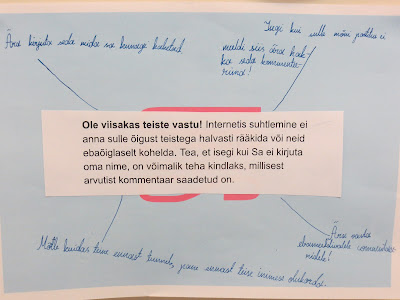 Ära kirjuta seda mida sa hiljem kahetsed
Isegi kui sulle mõni postitus ei
meeldi siis ära hak-
ka seda kommentee-
rima!
Ole viisakas teiste vastu! Internetis suhtlemine ei
anna sulle õigust teistega halvasti rääkida või neid
ebaõiglaselt kohelda. Tea, et isegi kui Sa ei kirjuta
oma nime, on võimalik teha kindlaks, millisest
arvutist kommentaar saadetud on.
Ära vasta
ebameeldivatele kommentaari-
dele!
Mõtle kuidas teine ennast tunneb, pane ennast teise inimese olukorda.